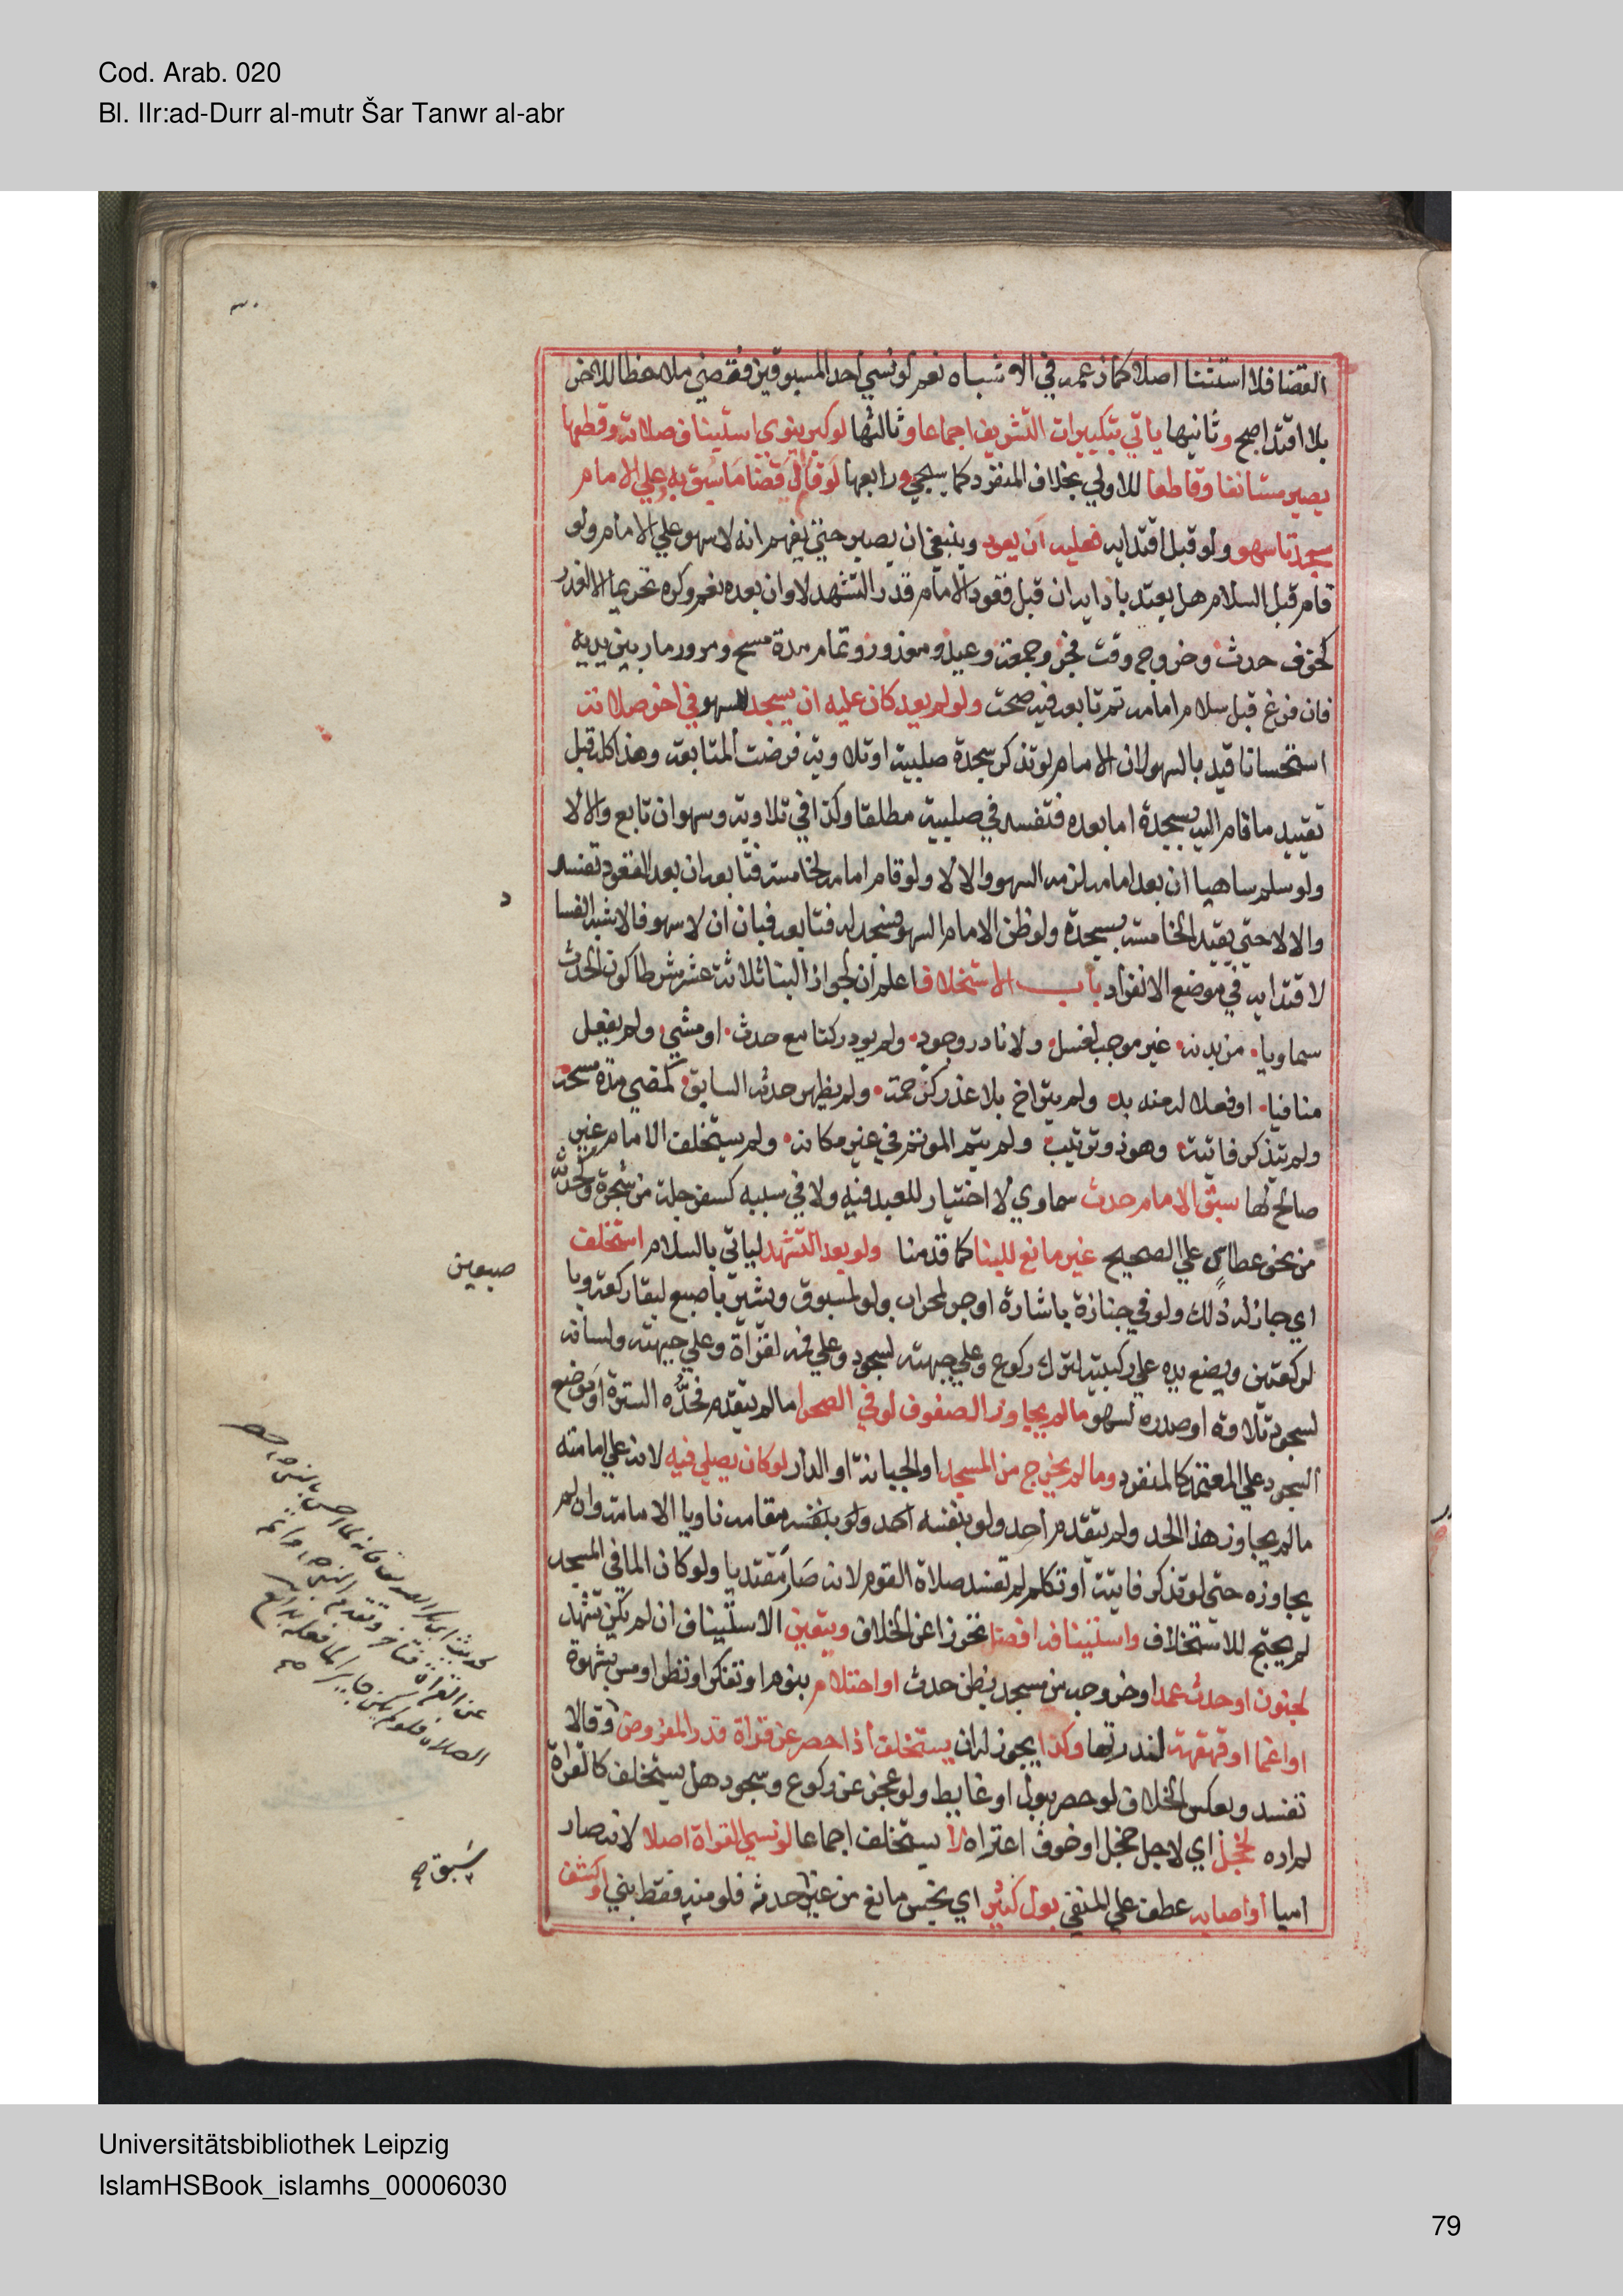 Cod. Arab. 020
Bl. IIr:ad-Durr al-mutr Šar Tanwr al-abr
القضا فلا استثنا اصلا كما زعمه في الاشباه نعم لو نسي احد المسبوقين فقضي ملاحظا للاخر
بلا اقتدا صح وثانيها ياتي بتكبيرات التشريق اجماعا وثالثها لو كبر ينوي استيناف صلاته وقطعها
يصير مستانفا وقاطعا للاولي بخلاف المنفرد كما سيجي ورابعها لو قام الي قضا ما سبق به وعلي الامام
سجدتا سهو ولو قبل اقتدايه فعليه ان يعود وينبغي ان يصبر حتي يفهم انه لا سهو علي الامام ولو
قام قبل السلام هل يعتد بادايه ان قبل قعود الامام قدر التشهد لا وان بعده نعم وكره تحريما الا لعذر
كخوف حدث وخروج وقت فجر وجمعة وعيد ومعذور وتمام مدة مسح ومرور مار بين يديه
فان فرغ قبل سلام امامه ثم تابعه فيه صحت ولو لم يعد كان عليه ان يسجد للسهو في اخر صلاته
استحسانا قيد بالسهو لان الامام لو تذكر سجدة صلبية او تلاوية فرضت المتابعة وهذا كله قبل
تقييد ما قام اليه بسجدة اما بعده فتفسد في صلبية مطلقا وكذا في تلاوية وسهو ان تابع والا لا
ولو سلم ساهيا ان بعد امامه لزمه السهو والا لا ولو قام امامه لخامسة فتابعه ان بعد القعود تفسد
والا لا حتي يقيد الخامسة بسجدة ولو ظن الامام السهو فسجد له فتابعه فبان ان لا سهو فالاشبه الفسا
لاقتدايه في موضع الانفراد باب الاستخلاف اعلم ان لجواز البنا ثلاثة عشر شرطا كون الحدث
سماويا من بدنه غير موجب لغسل ولا نادر وجود ولم يود ركنا مع حدث او مشي ولم يفعل
منافيا او فعلا له منه بد ولم يتراخ بلا عذر كزحمة ولم يظهر حدثه السابق كمضي مدة مسحه
ولم يتذكر فايتة وهو ذو ترتيب ولم يتم الموتم في غير مكانه ولم يستخلف الامام غير
صالح لها سبق الامام حدث سماوي لا اختيار للعبد فيه ولا في سببه كسفرجلة من شجرة وكحدث
من نحو عطاس علي الصحيح غير مانع للبنا كما قدمنا ولو بعد التشهد لياتي بالسلام استخلف
اي جاز له ذلك ولو في جنازة باشارة او جر لمحراب ولو لمسبوق ويشير باصبع لبقا ركعة وبا
لركعتين ويضع يده علي ركبته لترك ركوع وعلي جبهته لسجود وعلي فمه لقراة وعلي جبهته ولسانه
لسجود تلاوة او صدره لسهو ما لم يجاوز الصفوف لو في الصحرا ما لم يتقدم فحده السترة او موضع
السجود علي المعتمد كالمنفرد وما لم يخرج من المسجد او الجبانة او الدار لو كان يصلي فيه لانه علي امامته
ما لم يجاوز هذا الحد ولم يتقدم احد ولو بنفسه مقامه ناويا الامامة وان لم
يجاوزه حتي لو تذكر فايتة او تكلم لم تفسد صلاة القوم لانه صار مقتديا ولو كان الما في المسجد
لم يحتج للاستخلاف واستينافه افضل تحرزا عن الخلاف ويتعين الاستيناف ان لم يكن تشهد
لجنون او حدث عمدا وخروجه من مسجد بظن حدث او احتلام بنوم او تفكر او نظر او مس بشهوة
او اغما او قهقهة لندرتها وكذا يجوز له ان يستخلف اذا حصر عن قراة قدر المفروض وقالا
تفسد وبعكس الخلاف لو حصر ببول او غايط ولو عجز عن ركوع وسجود هل يستخلف كالقراة
لم اره لخجل اي لاجل خجل او خوف اعتراه لا يستخلف اجماعا لو نسي القراة اصلا لانه صار
اميا او اصابه عطف علي المنفي بول كثير اي نجس مانع من غير حدثه فلو منه فقط بني او كشف
صبعين
سبق صح
Universitätsbibliothek Leipzig
IslamHSBook_islamhs_00006030
79